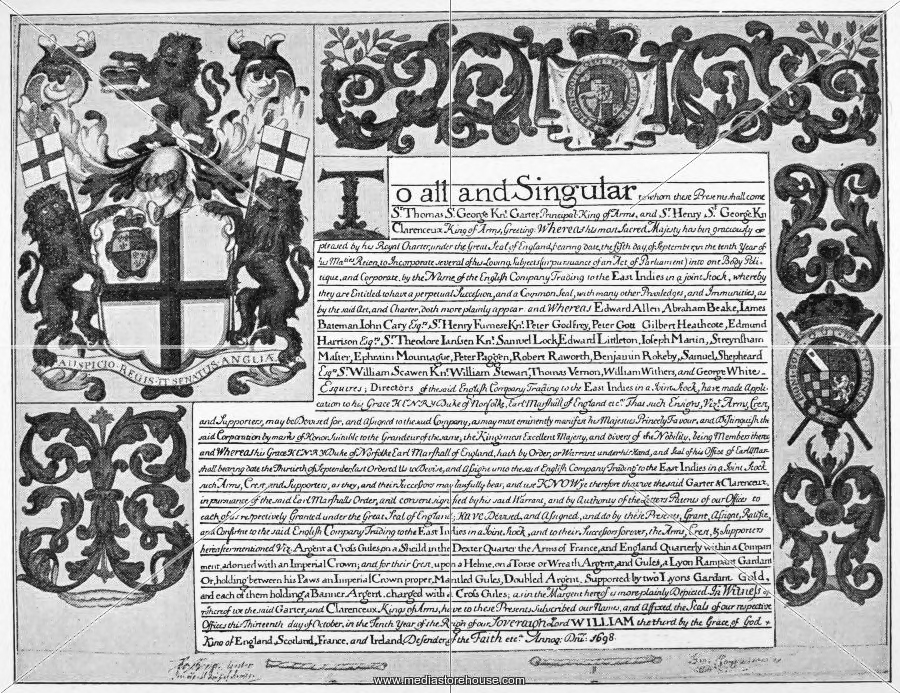 To all and Singular to whom these Presents shall come
Sr Thomas St George Knt. Garter Principal King of Arms, and Sr Henry St George Kn
Clarenceux King of Arms, Greeting. Whereas his most Sacred Majesty has bin graciously
pleased by his Royal Charter, under the Great Seal of England, bearing date the fifth day of September in the tenth Year of
his Maties Reign, to Incorporate several of his Loving Subjects (in pursuance of an Act of Parliament) into one Body Poli-
tique, and Corporate, by the Name of the English Company Trading to the East Indies in a joint Stock, whereby
they are Entitled to have a perpetual Succession, and a Common Seal, with many other Priviledges, and Immunities, as
by the said Act, and Charter, doth more plainly appear and Whereas Edward Allen, Abraham Beake, James
Bateman, John Cary Esqrs Sr Henry Furnese Knt. Peter Godfrey, Peter Gott Gilbert Heathcote, Edmund
Harrison Esqrs Sr Theodore Janssen Knt. Samuel Lock, Edward Littleton, Joseph Martin, Streynsham
Master, Ephraim Mountague, Peter Paggen, Robert Raworth, Benjamin Rokeby, Samuel Shepheard
Esqrs Sr William Scawen Knt. William Stewart, Thomas Vernon, William Withers, and George White
Esquires; Directors of the said English Company Trading to the East Indies in a Joint Stock, have made Appli-
cation to his Grace HENRY Duke of Norfolk, Earl Marshall of England etc. That such Ensigns, Vizt. Arms, Crest,
and Supporters, may be Devised for, and Assigned to the said Company, as may most eminently manifest his Majesties Princely Favour, and Distinguish the
said Corporation by marks of Honor Suitable to the Grandeur of the same, the Kings most Excellent Majesty, and divers of the Nobility, being Members thereof
and Whereas his Grace HENRY Duke of Norfolke Earl Marshall of England, hath by Order, or Warrant under his Hand, and Seal of his Office of Earl Mar-
shall bearing date the Thirtieth of September last Ordered Us to Devise, and Assigne unto the said English Company Trading to the East Indies in a Joint Stock
such Arms, Crest, and Supporters, as they, and their Successors may lawfully bear, and use KNOW ye therefore that we the said Garter & Clarenceux,
in pursuance of the said Earl Marshalls Order, and consent signified by his said Warrant, and by Authority of the Letters Patents of our Offices to
each of us respectively Granted under the Great Seal of England; Have Devised, and Assigned, and do by these Presents, Grant, Assigne, Ratifie,
and Confirme to the said English Company Trading to the East Indies in a Joint Stock, and to their Successors forever, the Arms, Crest, & Supporters
hereafter mentioned Viz. Argent a Cross Gules, on a Sheild in the Dexter Quarter the Arms of France, and England Quarterly within a Compart
ment, adorned with an Imperial Crown; and for their Crest, upon a Helme, on a Torse or Wreath Argent, and Gules, a Lyon Rampant Gardant
Or, holding between his Paws an Imperial Crown proper, Mantled Gules, Doubled Argent, Supported by two Lyons Gardant Gold,
and each of them holding a Banner Argent charged with a Cross Gules; as in the Margent hereof is more plainly Depicted. In Witness
whereof we the said Garter, and Clarenceux Kings of Arms, have to these Presents Subscribed our Names, and Affixed the Seals of our respective
Offices this Thirteenth day of October, in the Tenth Year of the Reign of our Soveraign Lord WILLIAM the third by the Grace of God
King of England, Scotland, France, and Ireland Defender of the Faith etc. Annoq: Dni: 1698
AUSPICIO REGIS ET SENATUS ANGLIÆ
www.mediastorehouse.com